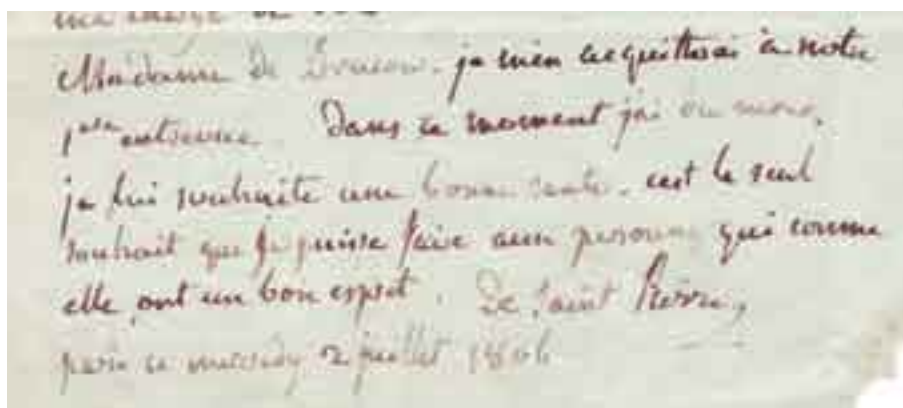 ma charge de
Madame de je mien acquitterai a notre
1ere entrevue. Dans ce moment jai
je lui souhaite une bonne santé. cest le seul
souhait que je puisse faire aux personnes qui comme
elle ont un bon esprit. De Saint Pierre,
paris ce mercredy 2 juillet 1806